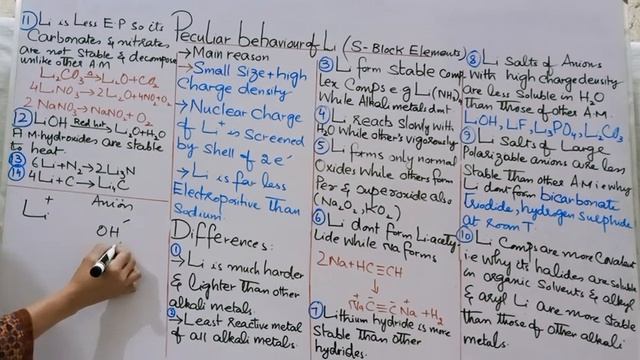 Peculiar behaviour of Li (S-Block Elements)
⑪ Li is Less E.P so its
Carbonates & nitrates
are not stable & decompose
unlike other A.M
Li₂CO₃ →Δ Li₂O + CO₂
4LiNO₃ → 2Li₂O + 4NO₂ + O₂
2NaNO₃ → NaNO₂ + O₂
⑫ LiOH Red hot → Li₂O + H₂O
A M-hydroxides are stable
to heat.
⑬ 6Li + N₂ → 2Li₃N
⑭ 4Li + C → Li₄C
Li⁺ Anion
OH⁻
→ Main reason
→ Small Size + high
Charge density
→ Nuclear Charge
of Li⁺ is Screened
by Shell of 2e⁻
→ Li is far less
Electropositive than
Sodium.
Differences:
①
→ Li is much harder
& lighter than other
alkali metals.
② → Least Reactive metal
of all alkali metals.
③ Li form Stable comp
lex Comps e.g Li(NH₃)₄
While Alkali metals dont
④ Li reacts Slowly with
H₂O While other's vigorously
⑤ Li forms only normal
Oxides While others form
Per & Superoxide also
(Na₂O₂, KO₂)
⑥ Li dont form Li-acety-
lide While Na forms
2Na + HC≡CH
↓
Na⁺ C⁻≡C⁻ Na⁺ + H₂
⑦ Lithium hydride is more
Stable than other
hydrides.
⑧ Li Salts of Anions
with high charge density
are less Soluble in H₂O
than those of other A.M.
LiOH, LiF, Li₃PO₄, Li₂CO₃
⑨ Li Salts of Large
Polarizable anions are less
Stable than other A.M i.e why
Li dont form bicarbonate
triodide, hydrogen Sulphide
at Room T
⑩ Li Comps are more Covalent
i.e why its halides are soluble
in organic Solvents & alkyl
& aryl Li are more Stable
than those of other alkali
metals.